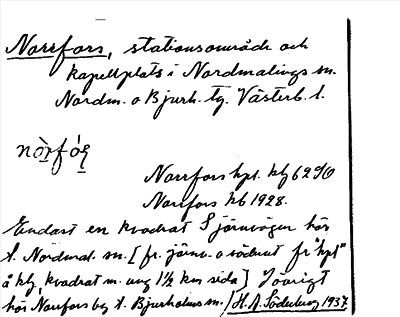 Norrfors, stationsområde och
kapellplats i Nordmalings sn.
Nordm. o Bjurh. tg. Västerb. l.
nòrfóṣ
Norrfors kpl. kbl 6290
Norrfors kb 1928.
Endast en kvadrat S järnvägen hör
t. Nordmal. sn. [fr. järnv. o söderut fr "kpl"
å kbl, kvadrat m. ung 1½ km sida] I övrigt
hör Norrfors by t. Bjurholms sn./ H. A. Söderberg 1937.